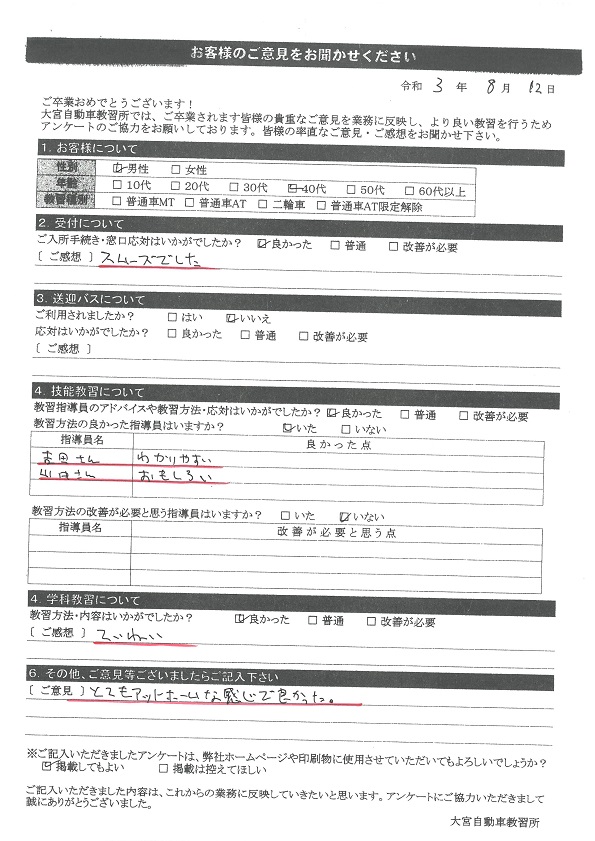 お客様のご意見をお聞かせください
令和 3 年 8 月 12 日
ご卒業おめでとうございます！
大宮自動車教習所では、ご卒業されます皆様の貴重なご意見を業務に反映し、より良い教習を行うため
アンケートのご協力をお願いしております。皆様の率直なご意見・ご感想をお聞かせ下さい。
1. お客様について
性別 ☑男性 □女性
年齢 □10代 □20代 □30代 ☑40代 □50代 □60代以上
教習種別 □普通車MT □普通車AT □二輪車 □普通車AT限定解除
2. 受付について
ご入所手続き・窓口応対はいかがでしたか？ ☑良かった □普通 □改善が必要
〔 ご感想 〕 スムーズでした
3. 送迎バスについて
ご利用されましたか？ □はい ☑いいえ
応対はいかがでしたか？ □良かった □普通 □改善が必要
〔 ご感想 〕
4. 技能教習について
教習指導員のアドバイスや教習方法・応対はいかがでしたか？ ☑良かった □普通 □改善が必要
教習方法の良かった指導員はいますか？ ☑いた □いない
指導員名 良かった点
吉田さん わかりやすい
山田さん おもしろい
教習方法の改善が必要と思う指導員はいますか？ □いた ☑いない
指導員名 改善が必要と思う点
4. 学科教習について
教習方法・内容はいかがでしたか？ ☑良かった □普通 □改善が必要
〔 ご感想 〕 ていねい
6. その他、ご意見等ございましたらご記入下さい
〔 ご意見 〕 とてもアットホームな感じで良かった。
※ご記入いただきましたアンケートは、弊社ホームページや印刷物に使用させていただいてもよろしいでしょうか？
☑掲載してもよい □掲載は控えてほしい
ご記入いただきました内容は、これからの業務に反映していきたいと思います。アンケートにご協力いただきまして
誠にありがとうございました。
大宮自動車教習所